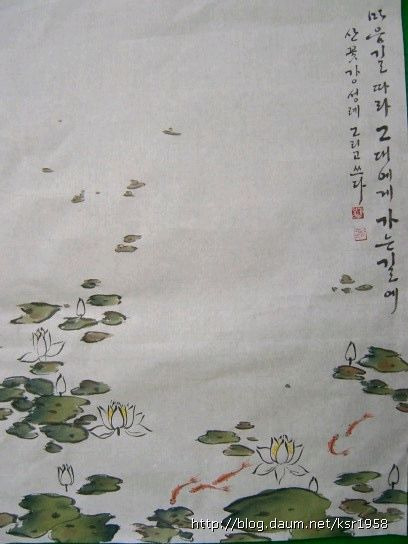 마음길 따라 그대에게 가는길에
산꽃 강성례 그리고 쓰다
http://blog.daum.net/ksr1958